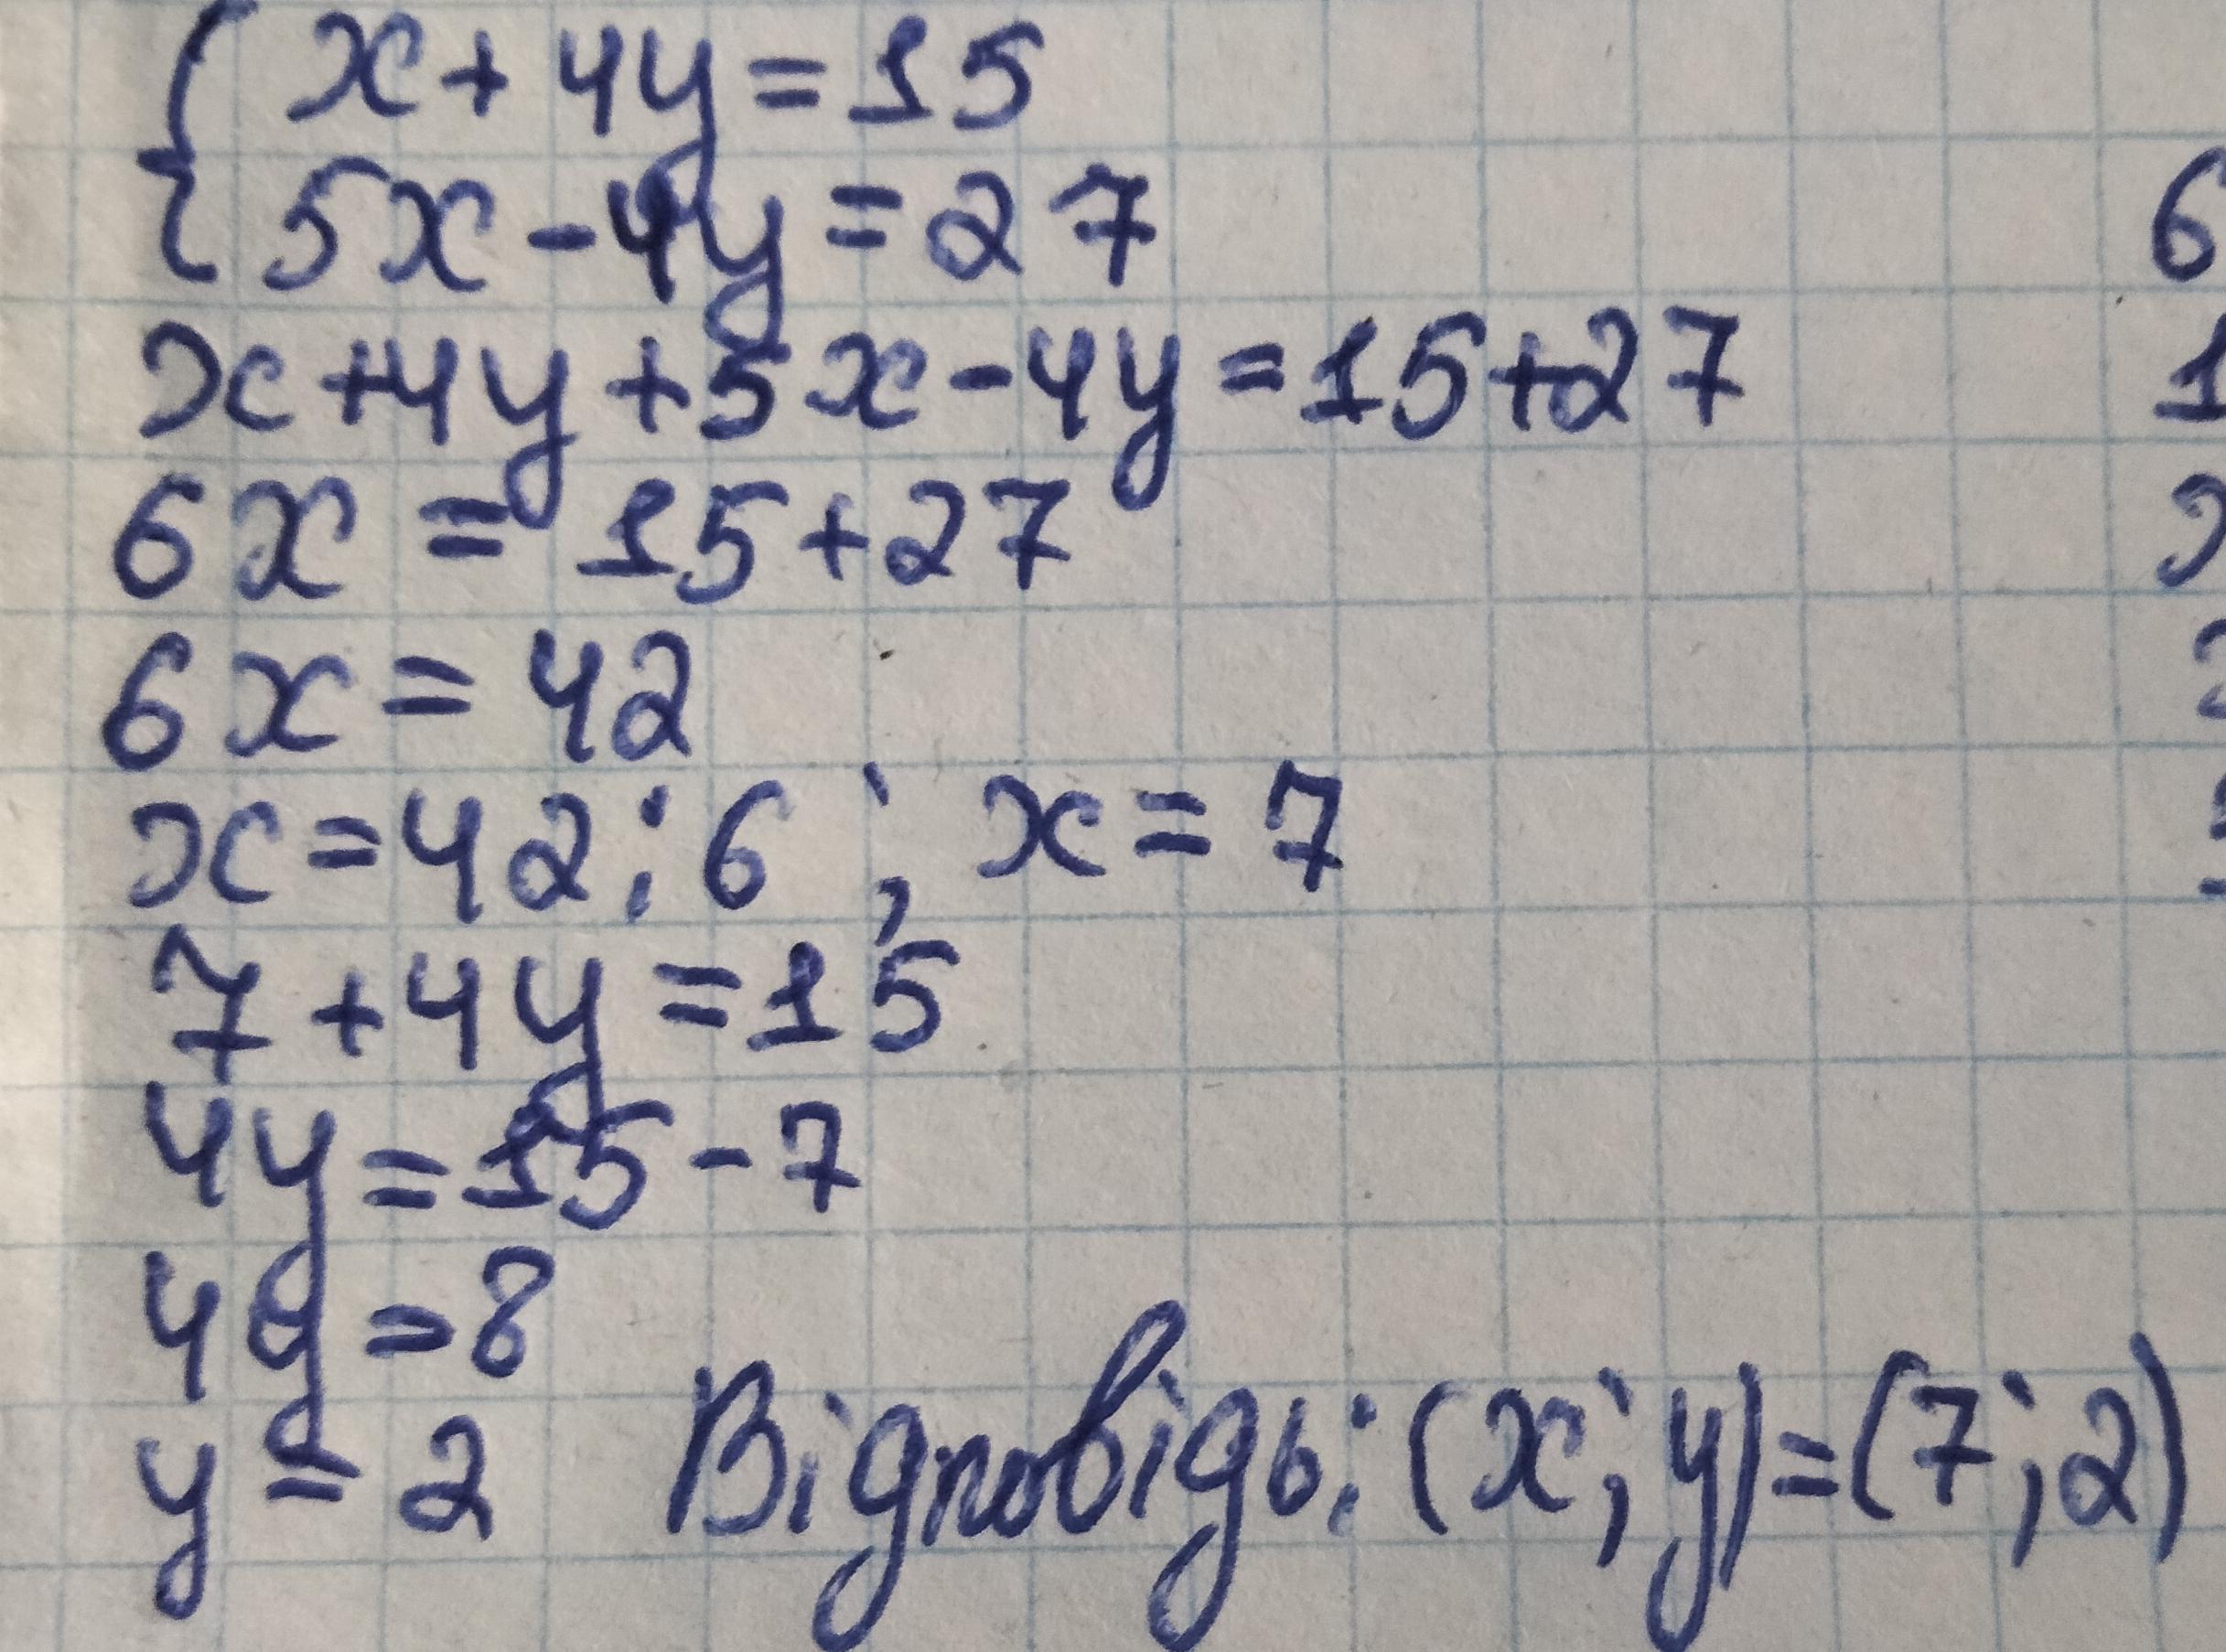 { x + 4y = 15
5x - 4y = 27
x + 4y + 5x - 4y = 15 + 27
6x = 15 + 27
6x = 42
x = 42 : 6 ; x = 7
7 + 4y = 15
4y = 15 - 7
4y = 8
y = 2 Відповідь: (x; y) = (7; 2)
6
1